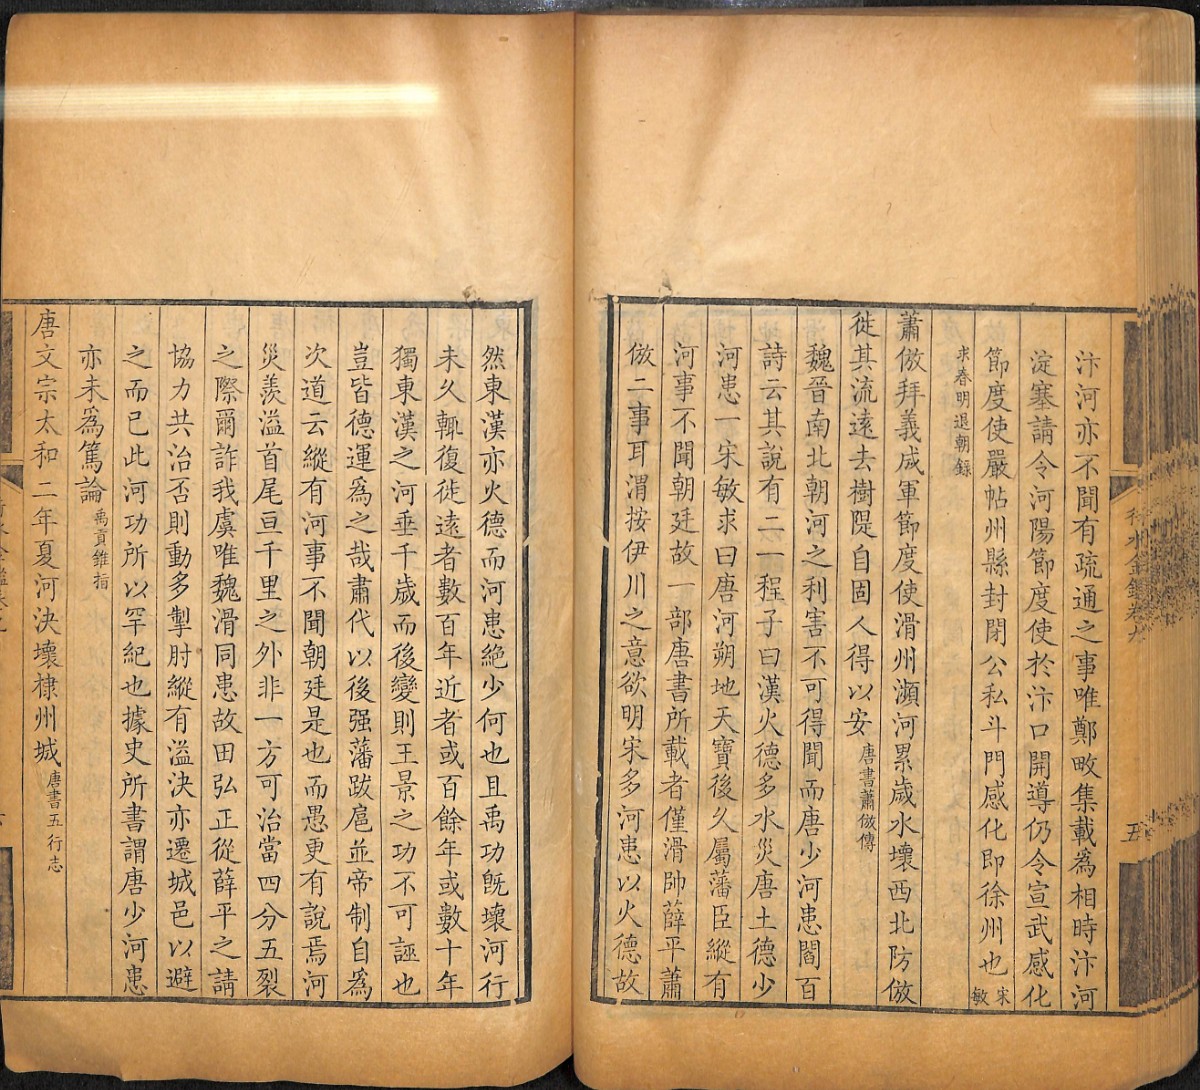 汴河亦不聞有疏通之事唯鄭畋集載爲相時汴河
淀塞請令河陽節度使於汴口開導仍令宣武感化
節度使嚴帖州縣封閉公私斗門感化即徐州也宋敏
求春明退朝錄
蕭倣拜義成軍節度使滑州瀕河累歲水壞西北防倣
徙其流遠去樹隄自固人得以安唐書蕭倣傳
魏晉南北朝河之利害不可得聞而唐少河患閻百
詩云其說有二一程子曰漢火德多水災唐土德少
河患一宋敏求曰唐河朔地天寶後久屬藩臣縱有
河事不聞朝廷故一部唐書所載者僅滑帥薛平蕭
倣二事耳渭按伊川之意欲明宋多河患以火德故
行水金鑑卷九
五
然東漢亦火德而河患絕少何也且禹功旣壞河行
未久輒復徙遠者數百年近者或百餘年或數十年
獨東漢之河垂千歲而後變則王景之功不可誣也
豈皆德運爲之哉肅代以後强藩跋扈並帝制自爲
次道云縱有河事不聞朝廷是也而愚更有說焉河
災羨溢首尾亘千里之外非一方可治當四分五裂
之際爾詐我虞唯魏滑同患故田弘正從薛平之請
協力共治否則動多掣肘縱有溢決亦遷城邑以避
之而已此河功所以罕紀也據史所書謂唐少河患
亦未爲篤論禹貢錐指
唐文宗太和二年夏河決壞棣州城唐書五行志